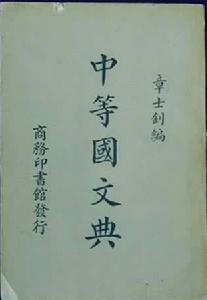 章士釗編
中等國文典
商務印書館發行